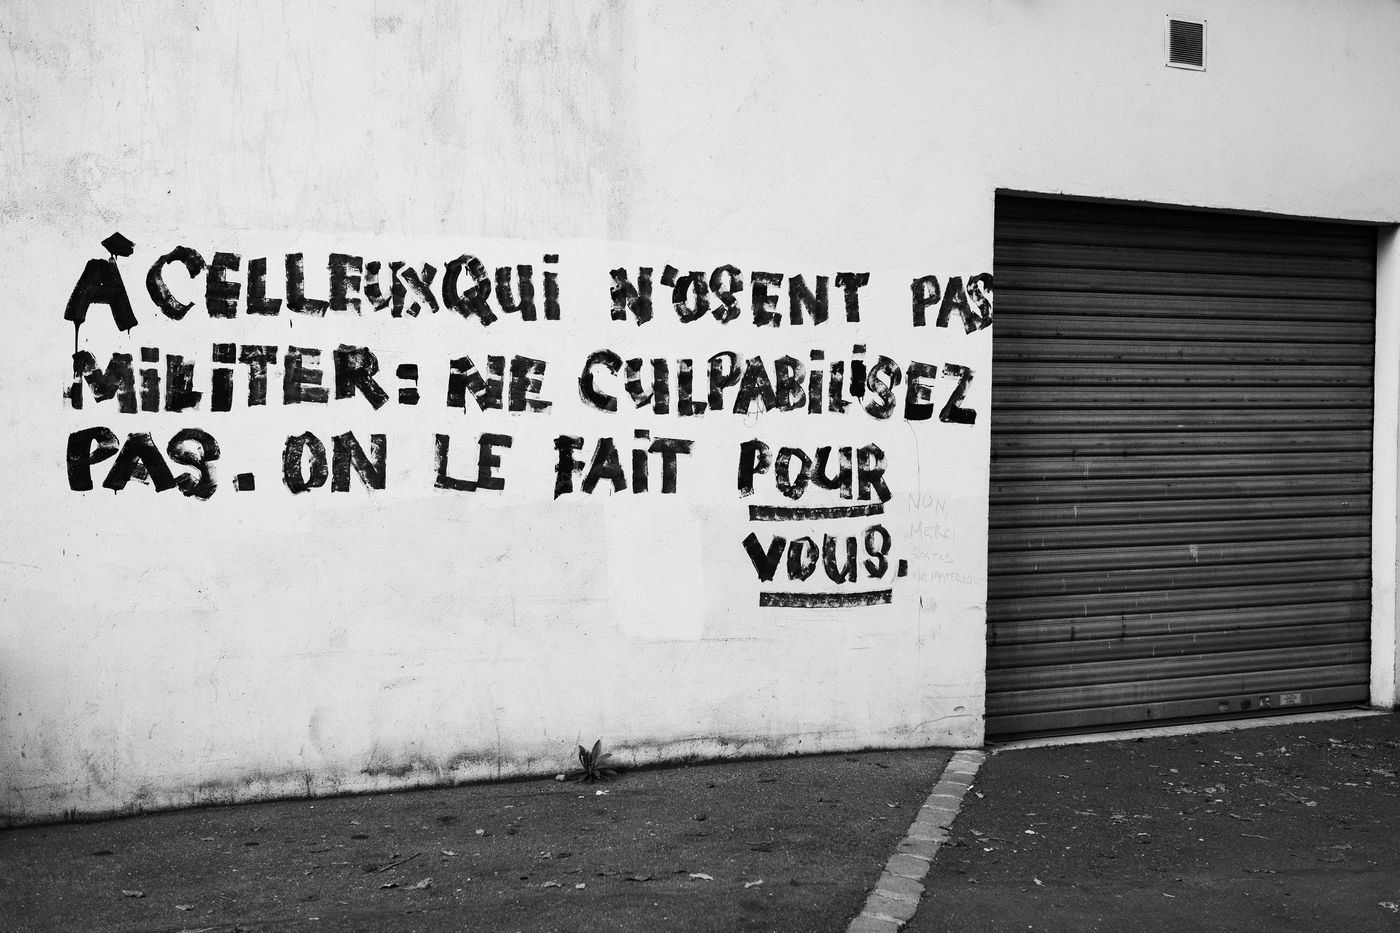 À CELLEUX QUI N'OSENT PAS
MILITER : NE CULPABILISEZ
PAS. ON LE FAIT POUR
VOUS.
NON,
MERCI